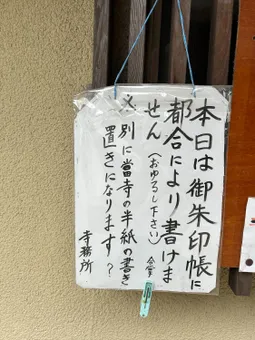 本日は御朱印帳に
都合により書けま
せん（おゆるし下さい）合掌
別に當寺の半紙の書き
置きになります？
寺務所